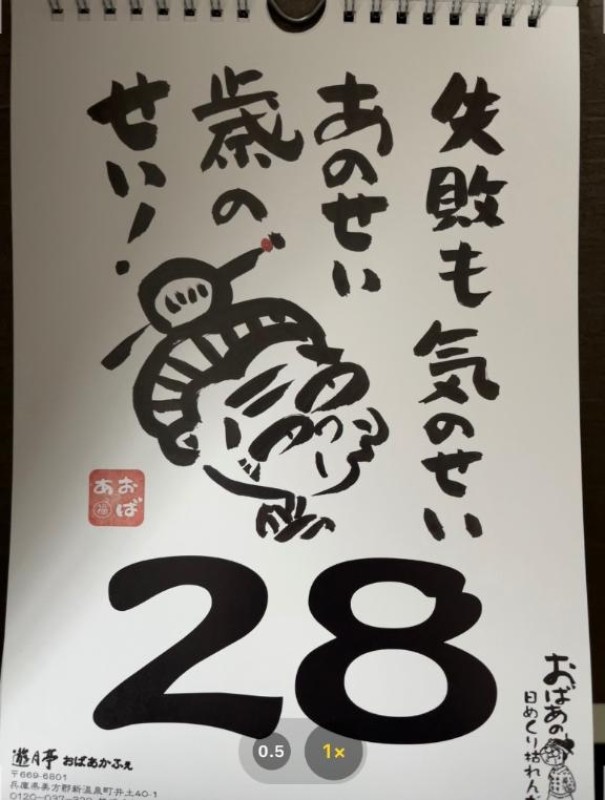 失敗も気のせい
あのせい
歳の
せい!
おばあ
福
28
おばあの
日めくり
遊月亭 おばあかふぇ
〒669-6801
兵庫県美方郡新温泉町井土40-1
0120-037-
0.5
1×